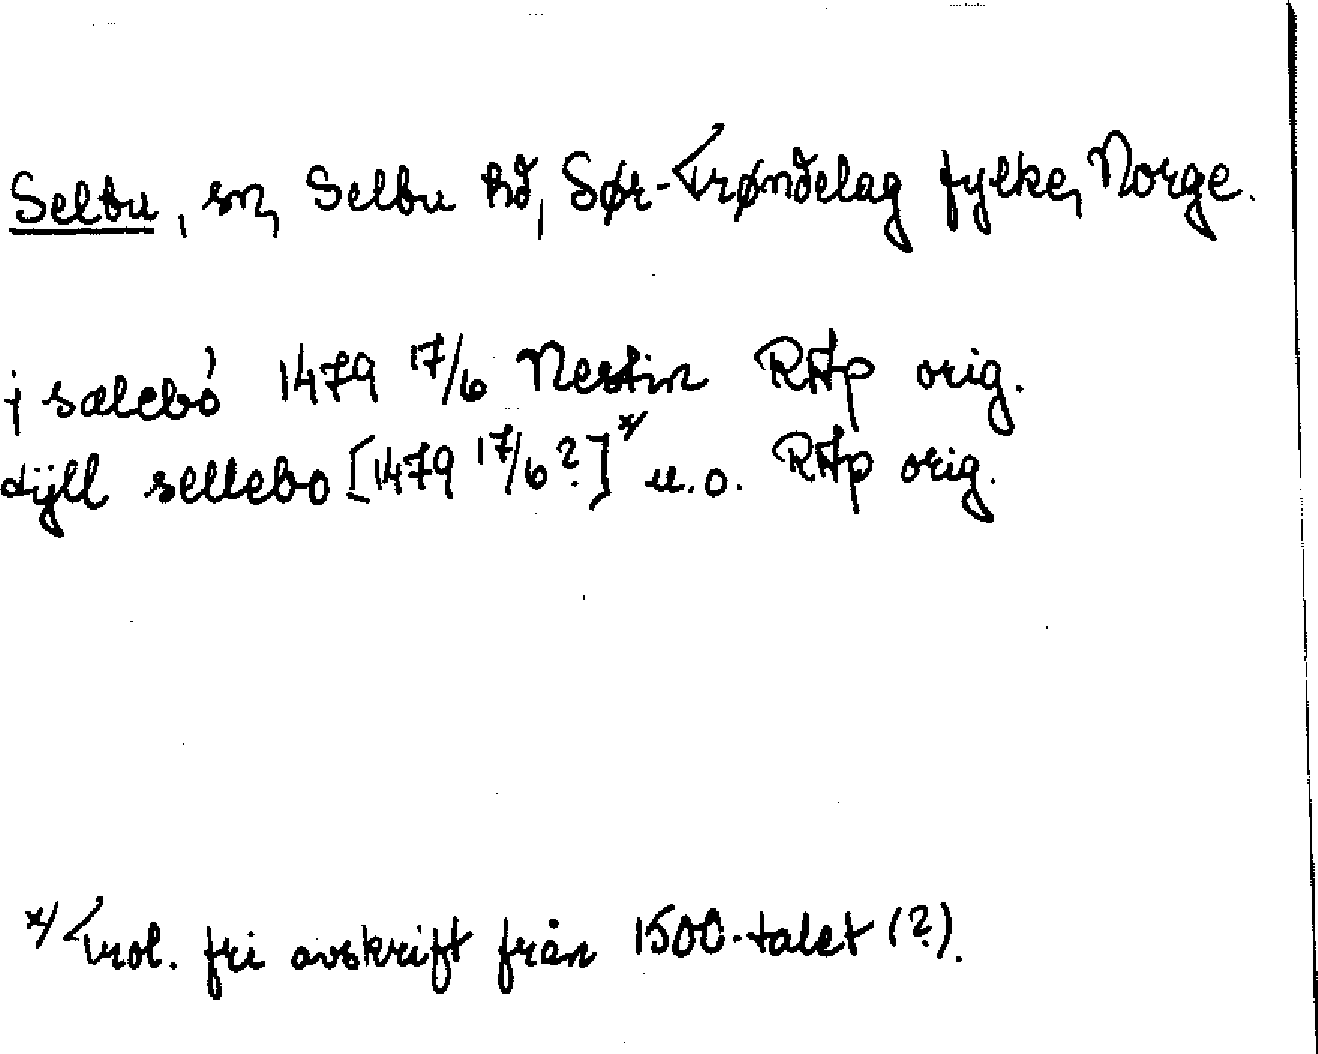 Selbu, sn, Selbu hd, Sør-Trøndelag fylke, Norge.
j sælebó 1479 17/6 Nestin RAp orig.
tÿll sellebo [1479 17/6?]x/ u.o. RAp orig.
x/ Trol. fri avskrift från 1500-talet (?).